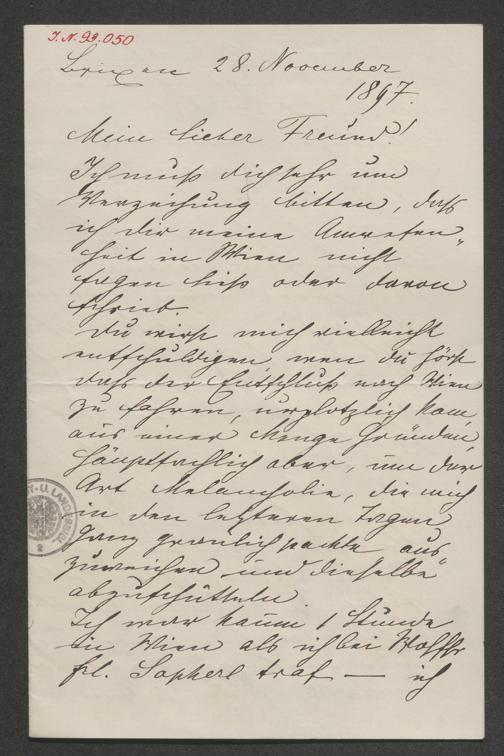 I. N. 93.050
Brixen 28. November
1897.
Mein lieber Freund!
Ich muß dich sehr um
Verzeihung bitten, daß
ich dir meine Anwesen„
heit in Wien nicht
sagen ließ oder davon
schrieb.
Du wirst mich vielleicht
entschuldigen, wen du hörst
daß der Entschluß nach Wien
zu fahren, urplötzlich kam,
aus einer Menge Gründen,
häuptsachlich aber, um der
Art Melancholie, die mich
in den letzteren Tagen
ganz graulich packte aus„
zuweichen und dieselbe
abzuschütteln
Ich war kaum 1 Stunde
in Wien als ich bei
Frl. Sopherl traf — ich